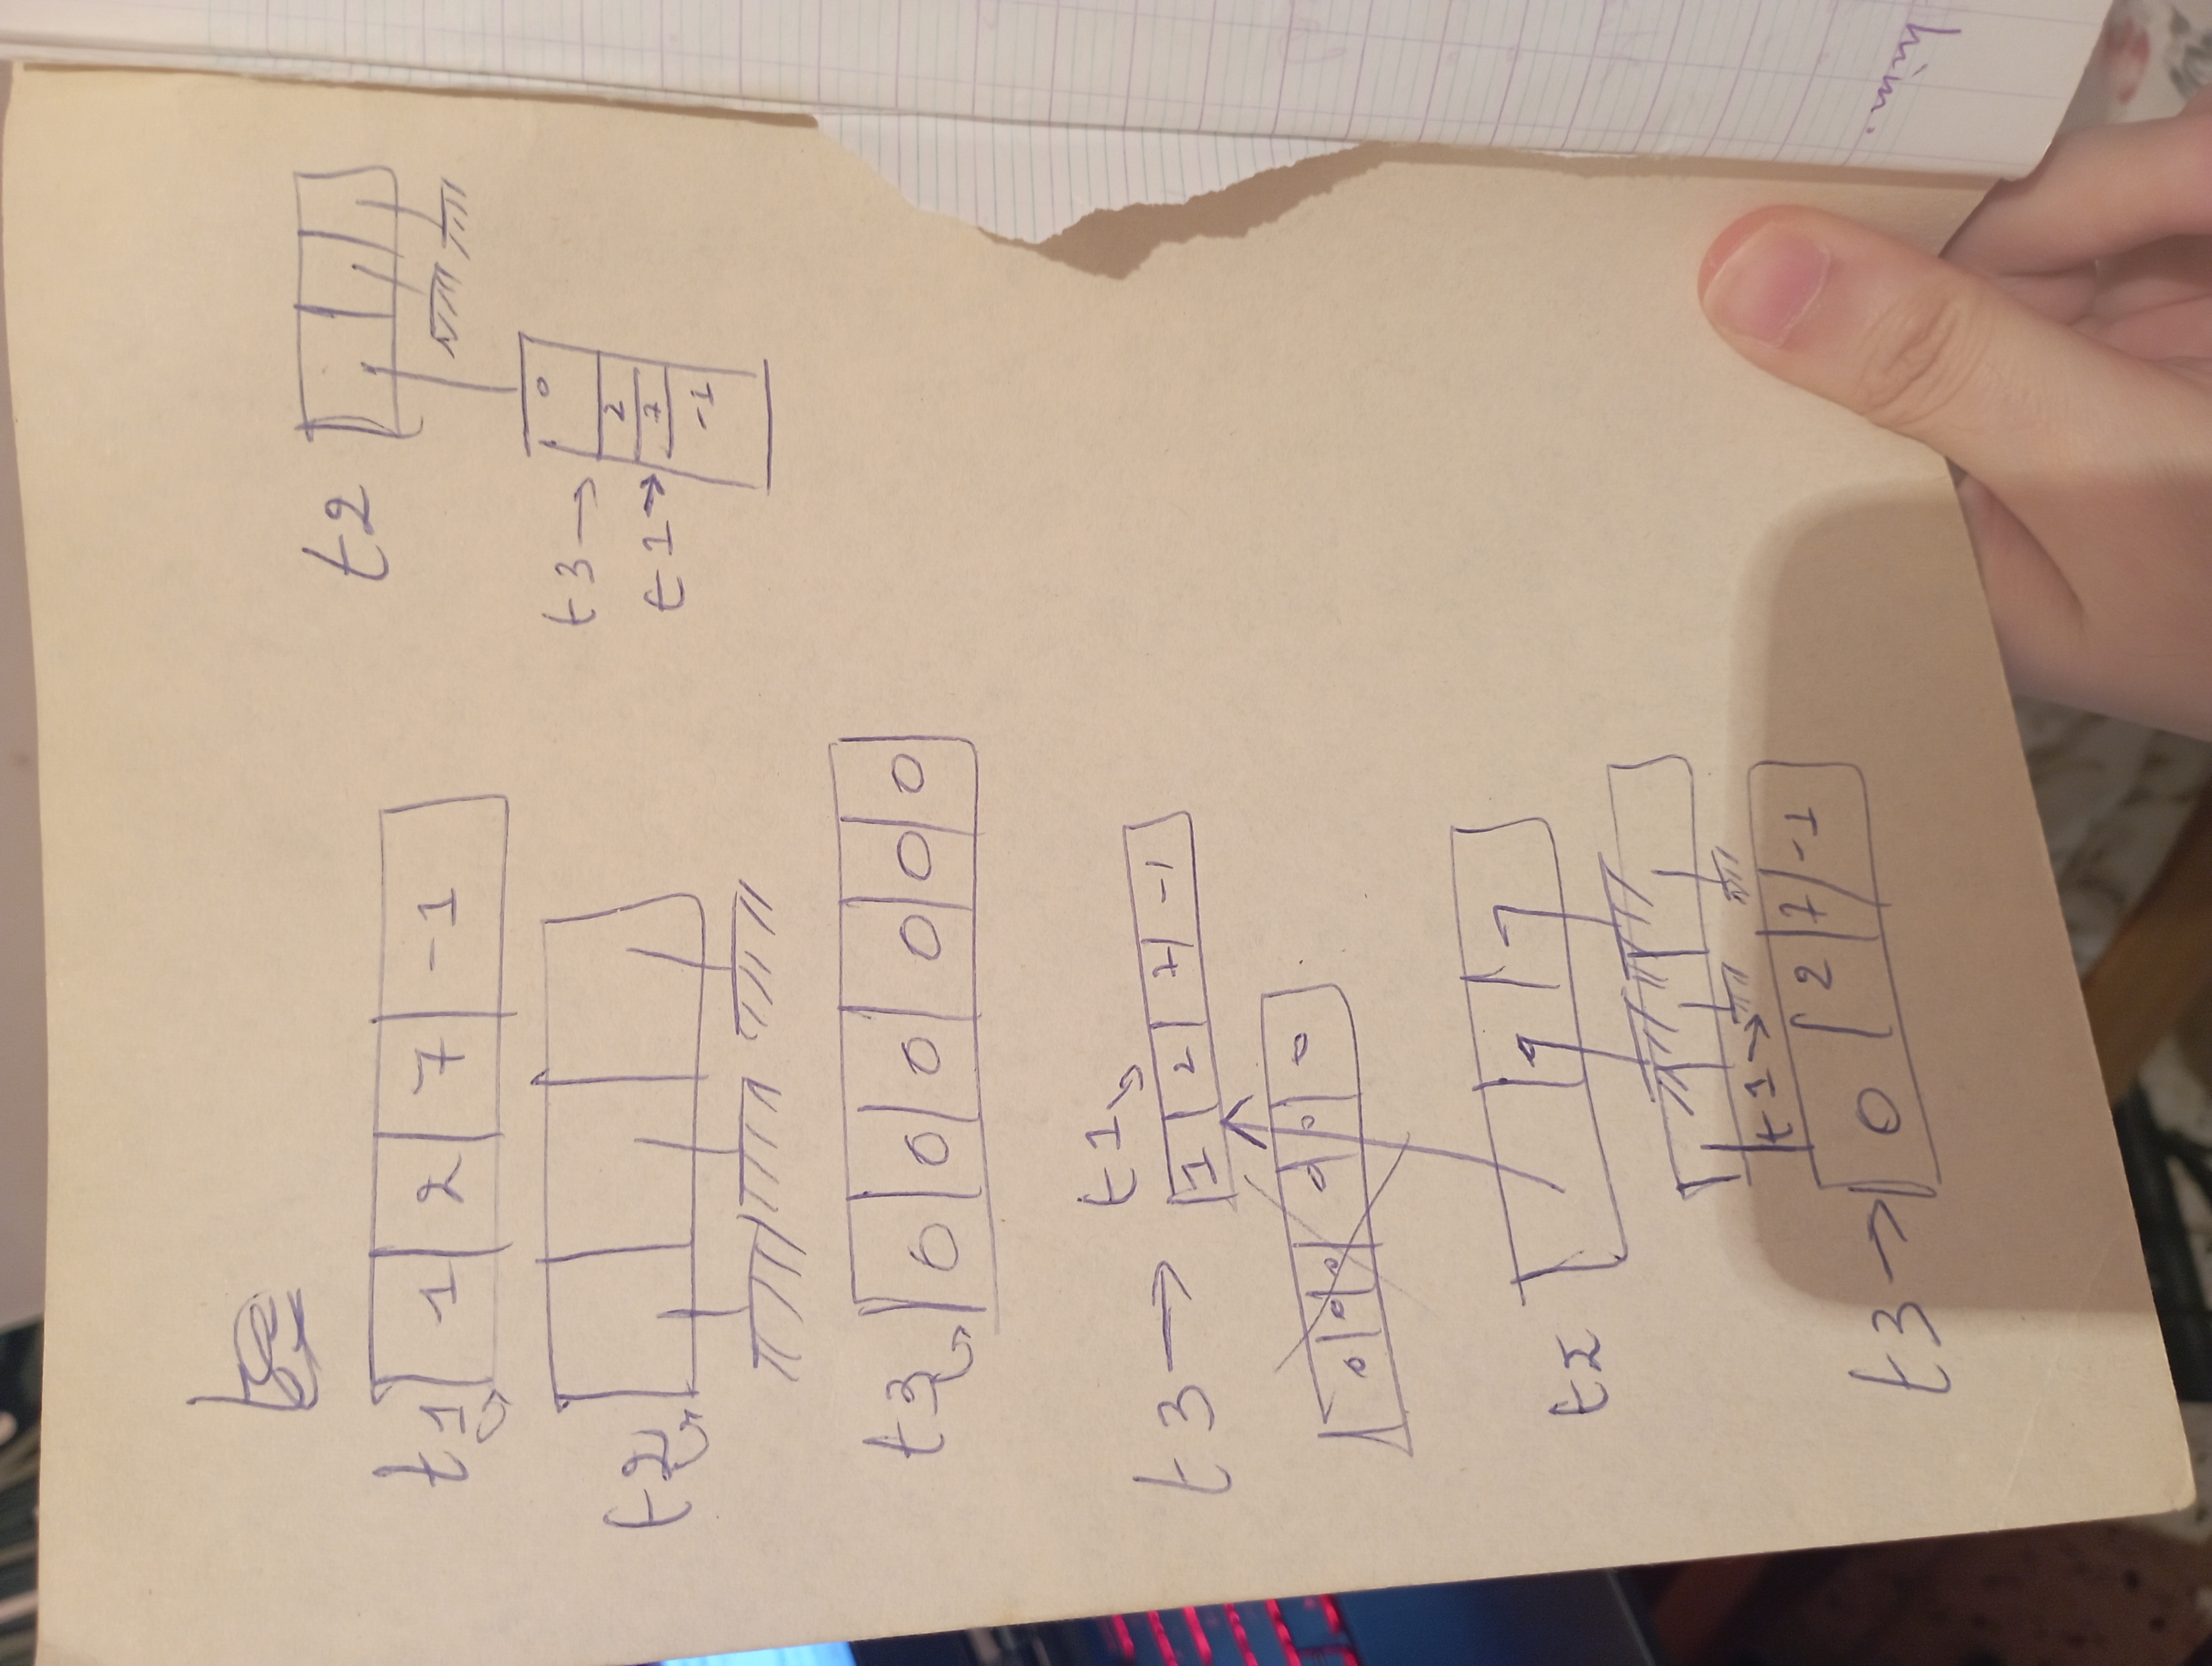 t1 1 2 7 -1
t2
t3 0 0 0 0 0 0
t1
t3 → 1 2 7 -1
0 0 0 0 0 0
t2
t1 →
t3 → 0 2 7 -1
t2
0
t3 →
2
t1 → 7
-1
him.